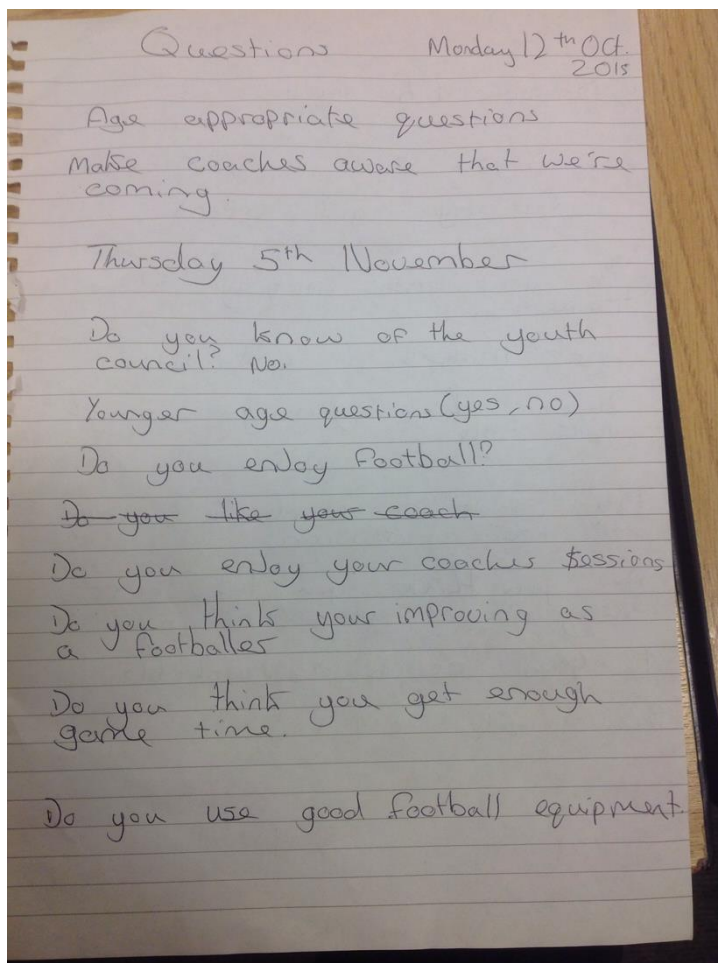 Questions Monday 12th Oct.
2015
Age appropriate questions
Make coaches aware that we're
coming.
Thursday 5th November
Do you know of the youth
council? No.
Younger age questions (yes, no)
Do you enjoy football?
Do you like your coach
Do you enjoy your coaches sessions
Do you think your improving as
a footballer
Do you think you get enough
game time.
Do you use good football equipment.